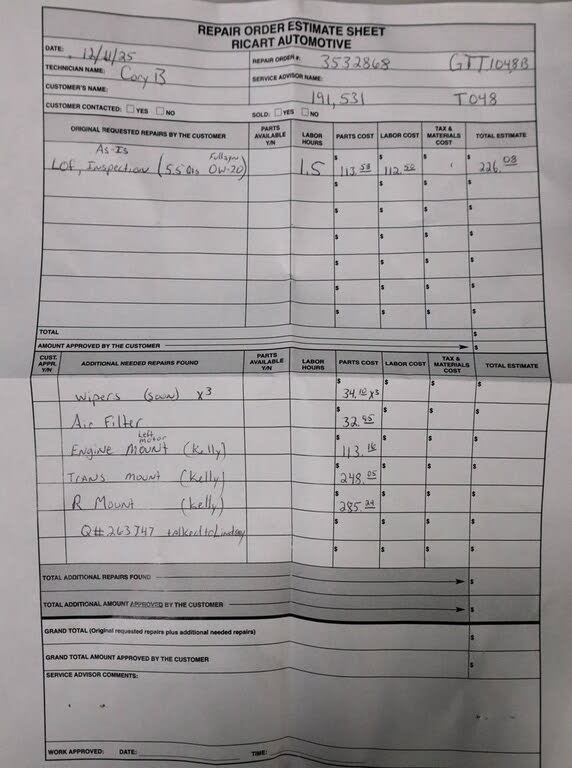 REPAIR ORDER ESTIMATE SHEET
RICART AUTOMOTIVE
DATE: 12/11/25 REPAIR ORDER #: 3532868 GTT1048B
TECHNICIAN NAME: Cory B SERVICE ADVISOR NAME:
CUSTOMER'S NAME: 191,531 T048
CUSTOMER CONTACTED: YES NO SOLD: YES NO
ORIGINAL REQUESTED REPAIRS BY THE CUSTOMER PARTS AVAILABLE Y/N LABOR HOURS PARTS COST LABOR COST TAX & MATERIALS COST TOTAL ESTIMATE
As-Is
LOF, Inspection (5.5 Qts Full syn 0W-20) 1.5 $ 113.58 $ 112.50 $ $ 226.08
$ $ $ $
$ $ $ $
$ $ $ $
$ $ $ $
$ $ $ $
TOTAL $
AMOUNT APPROVED BY THE CUSTOMER $
CUST. APPR. Y/N ADDITIONAL NEEDED REPAIRS FOUND PARTS AVAILABLE Y/N LABOR HOURS PARTS COST LABOR COST TAX & MATERIALS COST TOTAL ESTIMATE
Wipers (soon) x3 $ 34.10 x3 $ $ $
Air Filter $ 32.95 $ $ $
Left motor
Engine Mount (Kelly) $ 113.16 $ $ $
Trans mount (Kelly) $ 248.05 $ $ $
R Mount (Kelly) $ 285.24 $ $ $
Q# 263747 talked to Lindsay $ $ $ $
$ $ $ $
TOTAL ADDITIONAL REPAIRS FOUND $
TOTAL ADDITIONAL AMOUNT APPROVED BY THE CUSTOMER $
GRAND TOTAL (Original requested repairs plus additional needed repairs) $
GRAND TOTAL AMOUNT APPROVED BY THE CUSTOMER $
SERVICE ADVISOR COMMENTS:
WORK APPROVED: DATE: TIME: